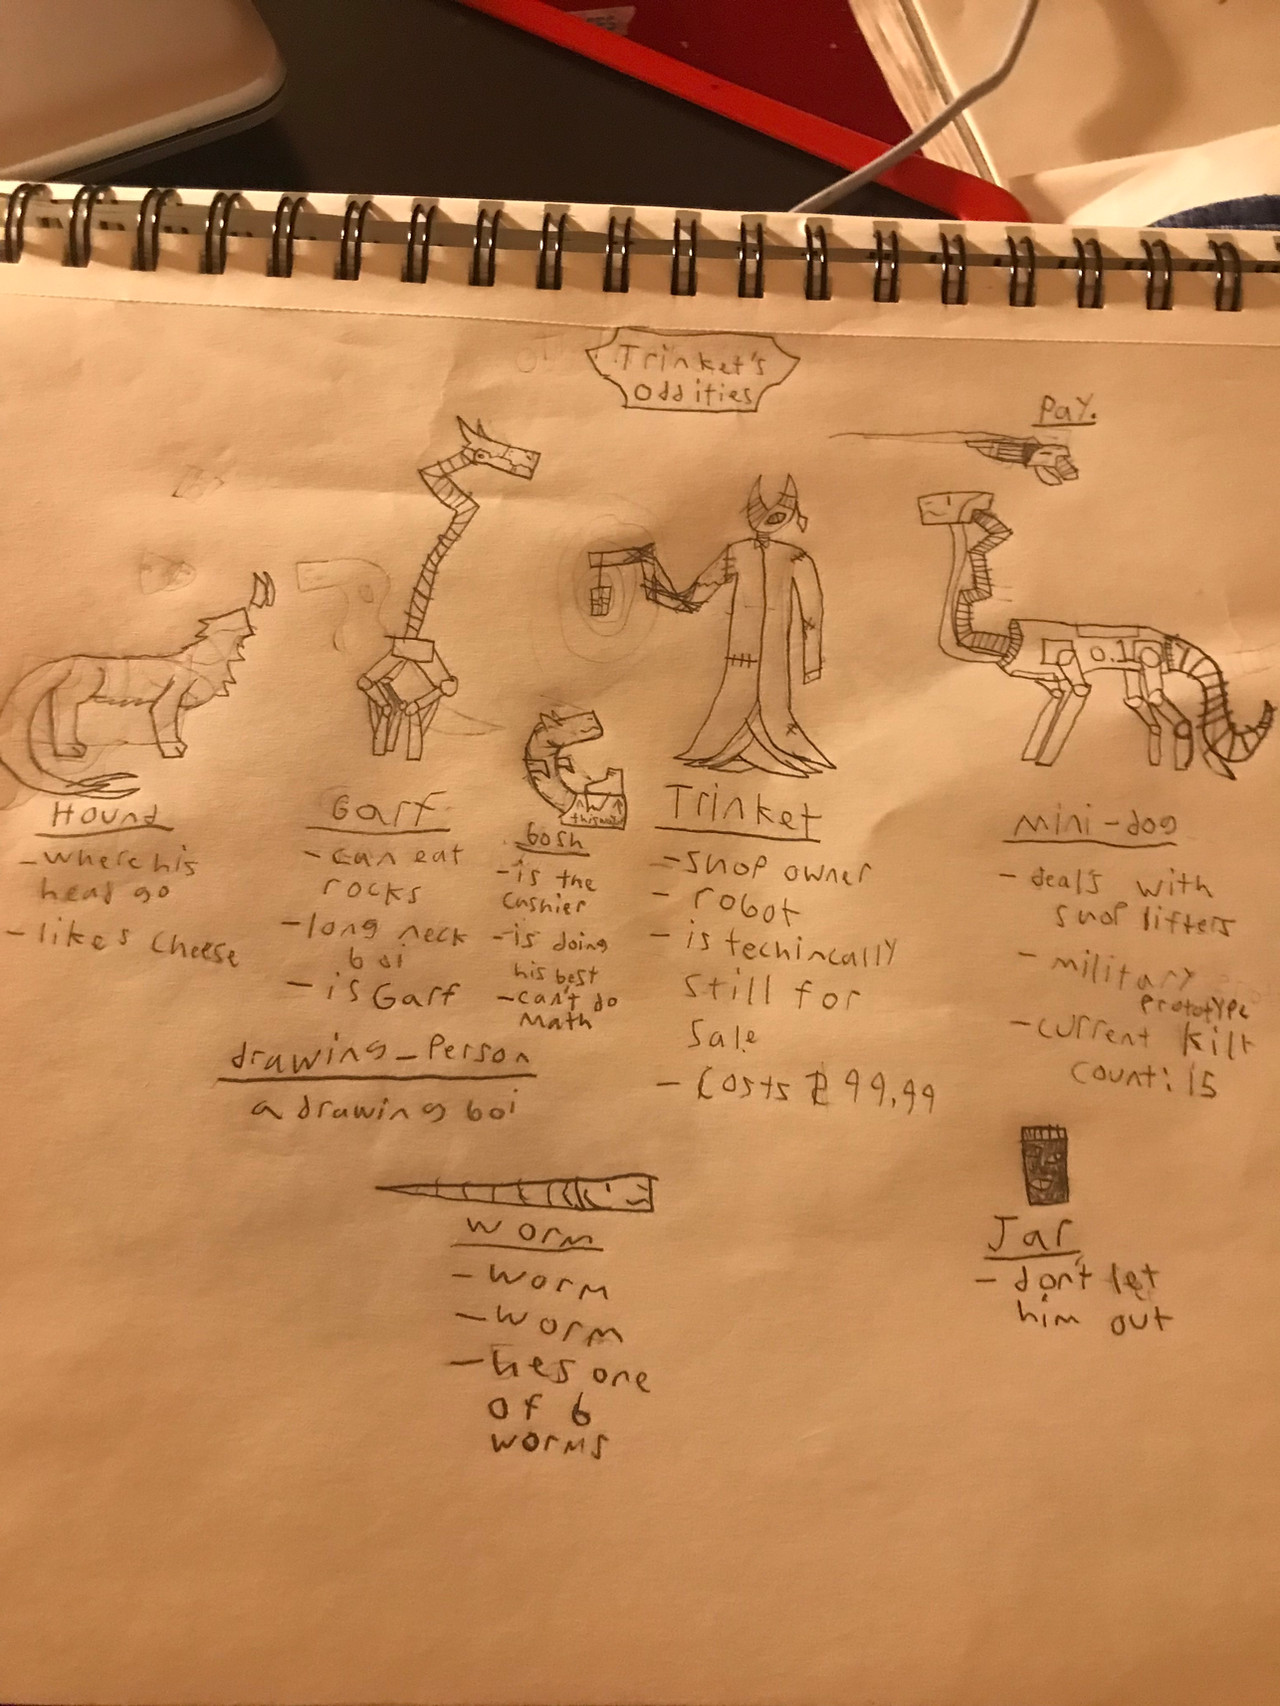 Trinket's
Oddities
Pay.
0.1
this way
Hound
- where his
head go
- likes cheese
Garf
- can eat
rocks
- long neck
boi
- is Garf
bosh
- is the
cashier
- is doing
his best
- can't do
math
Trinket
- shop owner
- robot
- is techincally
still for
sale
- Costs 99,99
mini-dog
- deals with
shop lifters
- military
prototype
- current kill
count: 15
drawing_Person
a drawing boi
worm
- worm
- worm
- hes one
of 6
worms
Jar
- don't let
him out